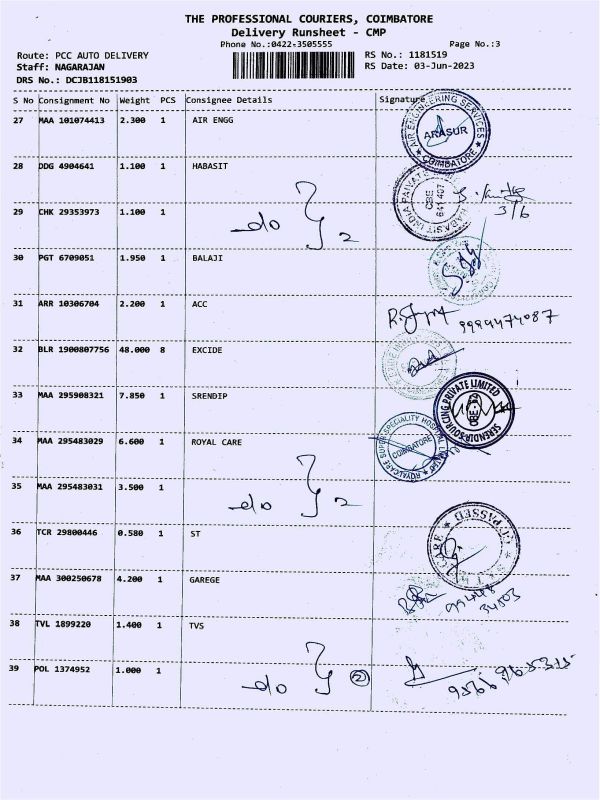 THE PROFESSIONAL COURIERS, COIMBATORE
Delivery Runsheet - CMP
Phone No.:0422-3505555 Page No.:3
Route: PCC AUTO DELIVERY RS No.: 1181519
Staff: NAGARAJAN RS Date: 03-Jun-2023
DRS No.: DCJB118151903
S No Consignment No Weight PCS Consignee Details Signature
27 MAA 101074413 2.300 1 AIR ENGG
AIR ENGINEERING SERVICES
ARASUR
COIMBATORE
28 DDG 4904641 1.100 1 HABASIT
CBE
641 407
3/6
29 CHK 29353973 1.100 1
do 2
30 PGT 6709051 1.950 1 BALAJI
31 ARR 10306704 2.200 1 ACC
9994474087
32 BLR 1900807756 48.000 8 EXCIDE
33 MAA 295908321 7.850 1 SRENDIP
SERENDIP SOURCING PRIVATE LIMITED
34 MAA 295483029 6.600 1 ROYAL CARE
ROYALCARE SUPER SPECIALITY HOSPITAL LIMITED
COIMBATORE
35 MAA 295483031 3.500 1
do 2
36 TCR 29800446 0.580 1 ST
PASSED
37 MAA 300250678 4.200 1 GAREGE
38 TVL 1899220 1.400 1 TVS
39 POL 1374952 1.000 1
do 2